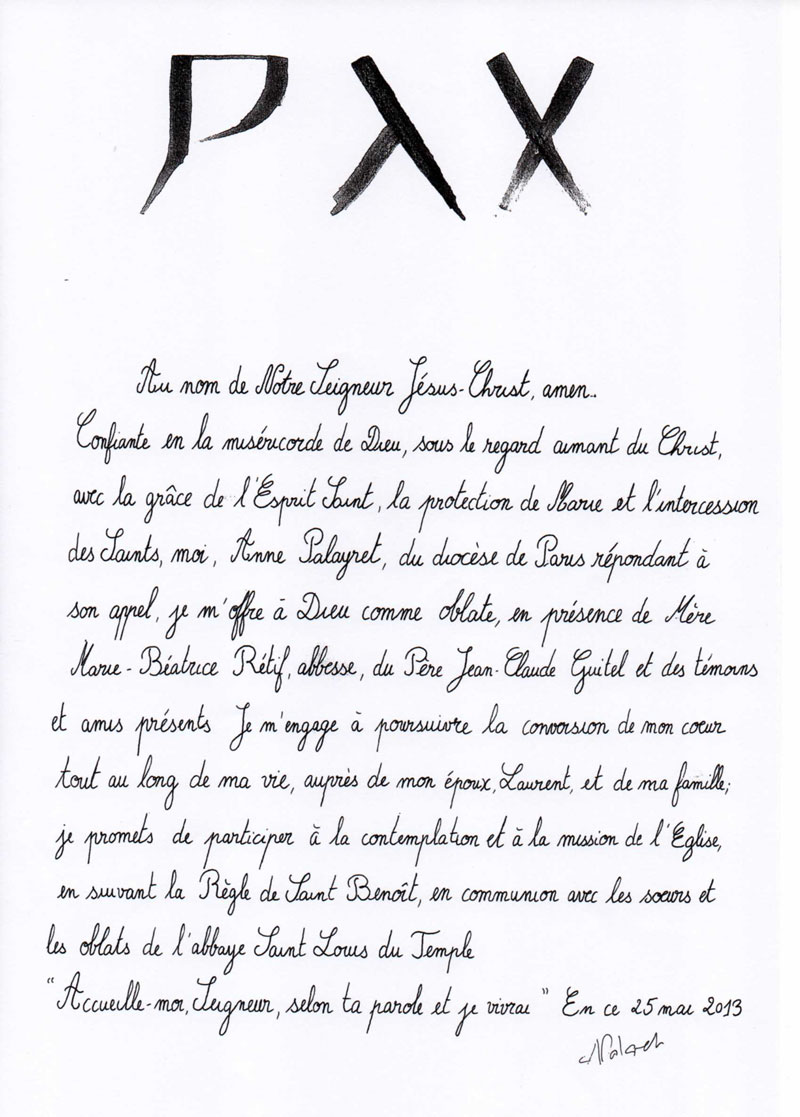 PAX
Au nom de Notre Seigneur Jésus-Christ, amen..
Confiante en la miséricorde de Dieu, sous le regard aimant du Christ,
avec la grâce de l'Esprit Saint, la protection de Marie et l'intercession
des Saints, moi, Anne Palayret, du diocèse de Paris répondant à
son appel, je m'offre à Dieu comme oblate, en présence de Mère
Marie-Béatrice Rétif, abbesse, du Père Jean-Claude Guitel et des témoins
et amis présents Je m'engage à poursuivre la conversion de mon cœur
tout au long de ma vie, auprès de mon époux, Laurent, et de ma famille;
je promets de participer à la contemplation et à la mission de l'Église,
en suivant la Règle de Saint Benoît, en communion avec les sœurs et
les oblats de l'abbaye Saint Louis du Temple
"Accueille-moi, Seigneur, selon ta parole et je vivrai" En ce 25 mai 2013